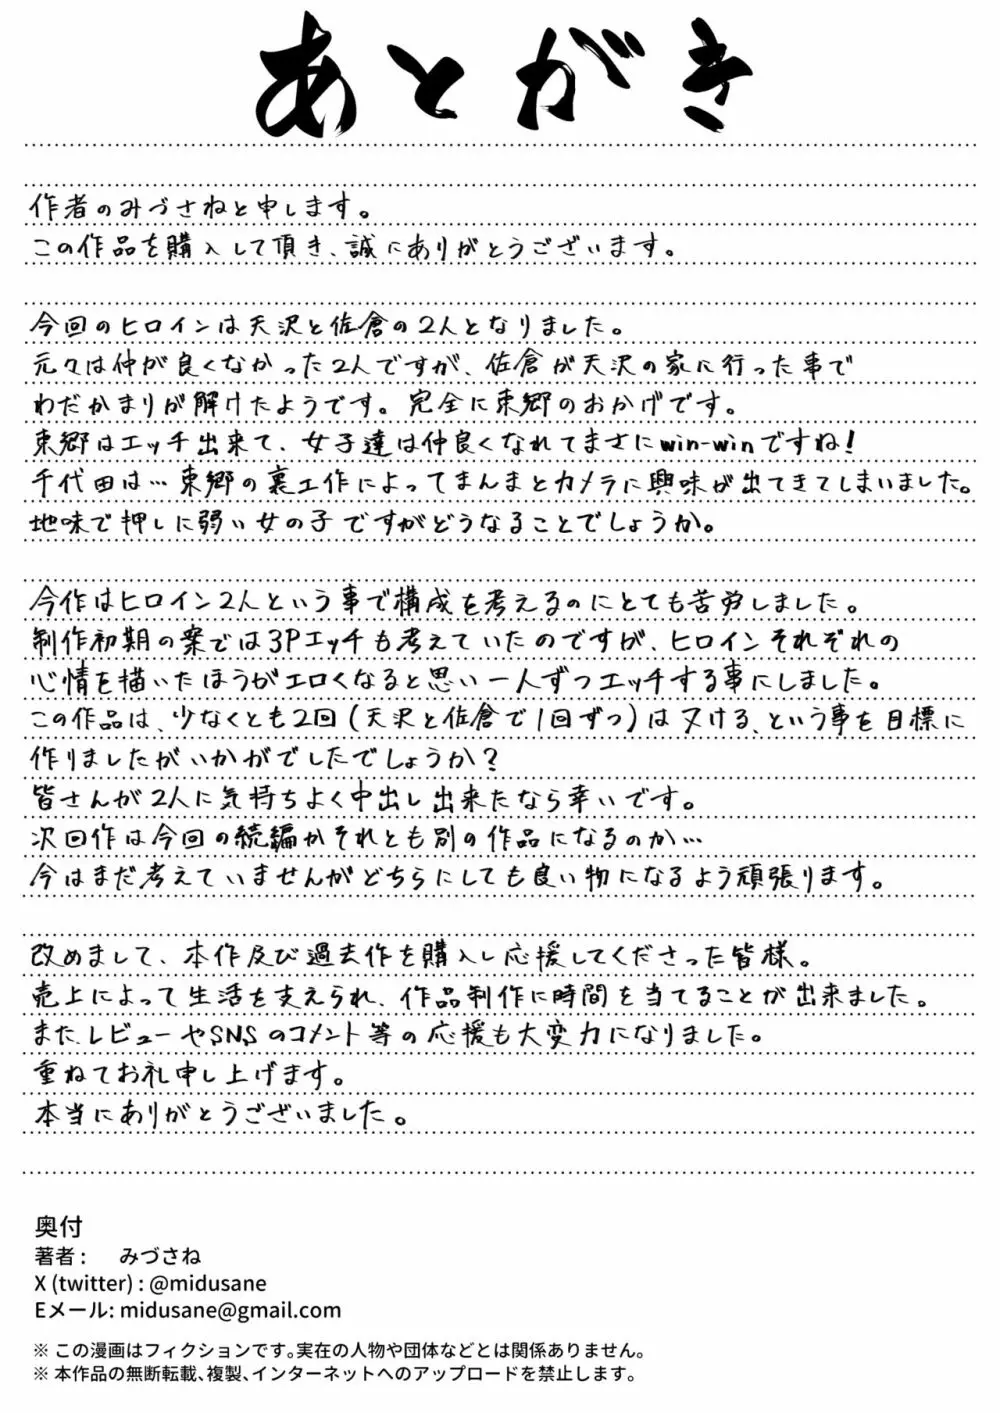 あとがき
作者のみづさねと申します。
この作品を購入して頂き、誠にありがとうございます。
今回のヒロインは天沢と佐倉の2人となりました。
元々は仲が良くなかった2人ですが、佐倉が天沢の家に行った事で
わだかまりが解けたようです。完全に東郷のおかげです。
東郷はエッチ出来て、女子達は仲良くなれてまさにwin-winですね!
千代田は…東郷の裏工作によってまんまとカメラに興味が出てきてしまいました。
地味で押しに弱い女の子ですがどうなることでしょうか。
今作はヒロイン2人という事で構成を考えるのにとても苦労しました。
制作初期の案では3Pエッチも考えていたのですが、ヒロインそれぞれの
心情を描いたほうがエロくなると思い一人ずつエッチする事にしました。
この作品は、少なくとも2回(天沢と佐倉で1回ずつ)はヌける、という事を目標に
作りましたがいかがでしたでしょうか?
皆さんが2人に気持ちよく中出し出来たなら幸いです。
次回作は今回の続編かそれとも別の作品になるのか…
今はまだ考えていませんがどちらにしても良い物になるよう頑張ります。
改めまして、本作及び過去作を購入し応援してくださった皆様。
売上によって生活を支えられ、作品制作に時間を当てることが出来ました。
また、レビューやSNSのコメント等の応援も大変力になりました。
重ねてお礼申し上げます。
本当にありがとうございました。
奥付
著者： みづさね
X (twitter) : @midusane
Eメール: midusane@gmail.com
※ この漫画はフィクションです。実在の人物や団体などとは関係ありません。
※ 本作品の無断転載、複製、インターネットへのアップロードを禁止します。